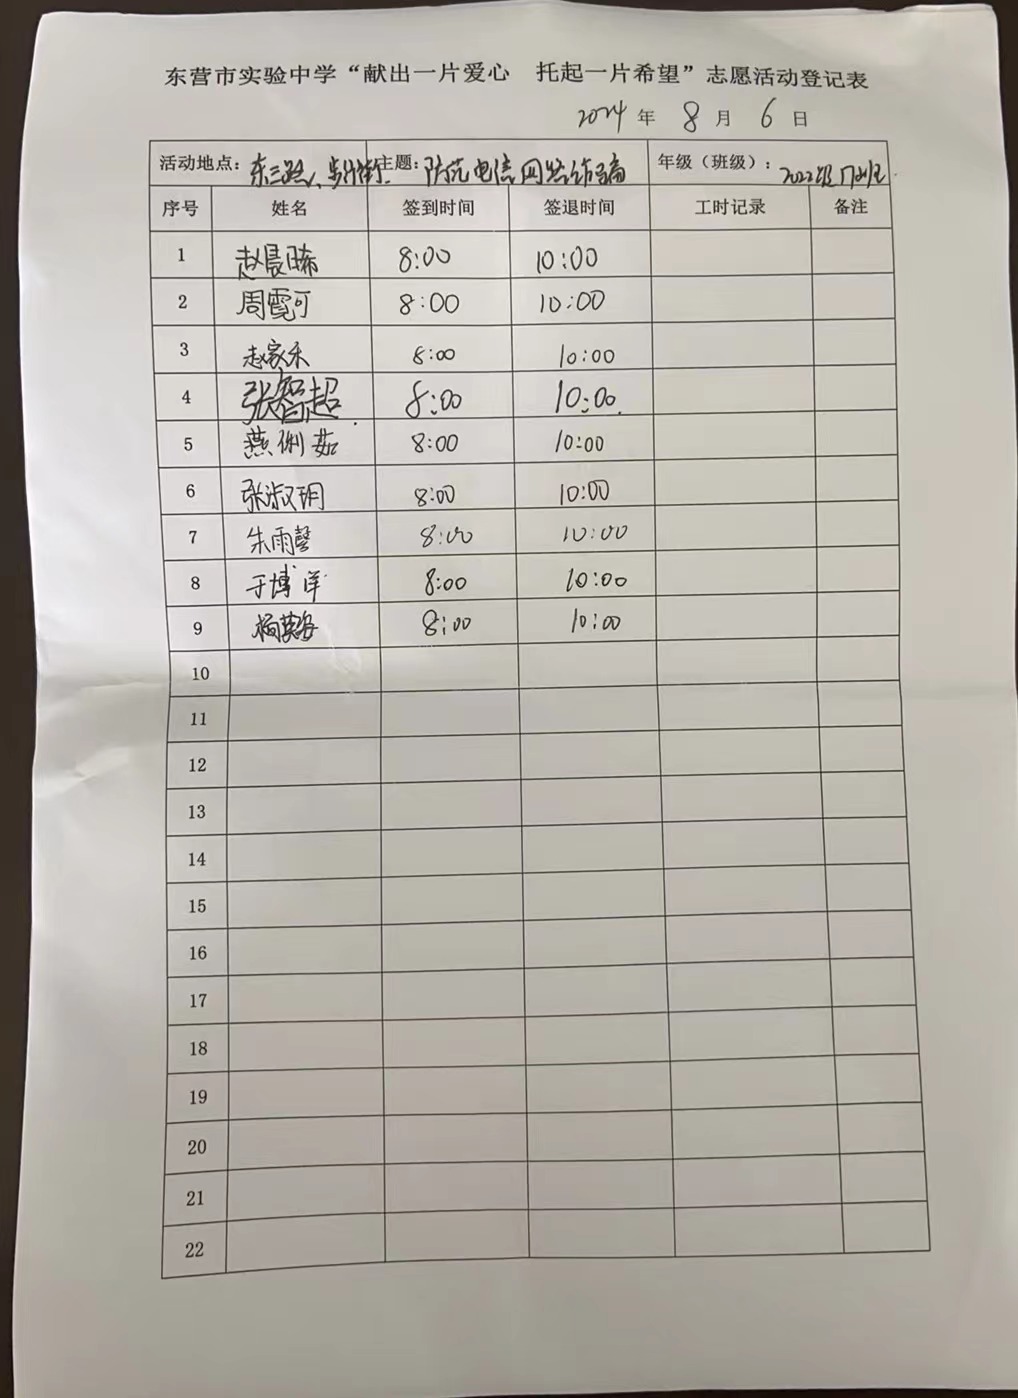 东营市实验中学“献出一片爱心　托起一片希望”志愿活动登记表
2024 年 8 月 6 日
活动地点：东三路、步行街 主题：防范电信网络诈骗 年级（班级）：2022级17班
序号 姓名 签到时间 签退时间 工时记录 备注
1 赵晨晞 8:00 10:00
2 周霓可 8:00 10:00
3 赵家禾 8:00 10:00
4 张智超 8:00 10:00
5 燕俐茹 8:00 10:00
6 张淑玥 8:00 10:00
7 朱雨馨 8:00 10:00
8 于博洋 8:00 10:00
9 8:00 10:00
10
11
12
13
14
15
16
17
18
19
20
21
22